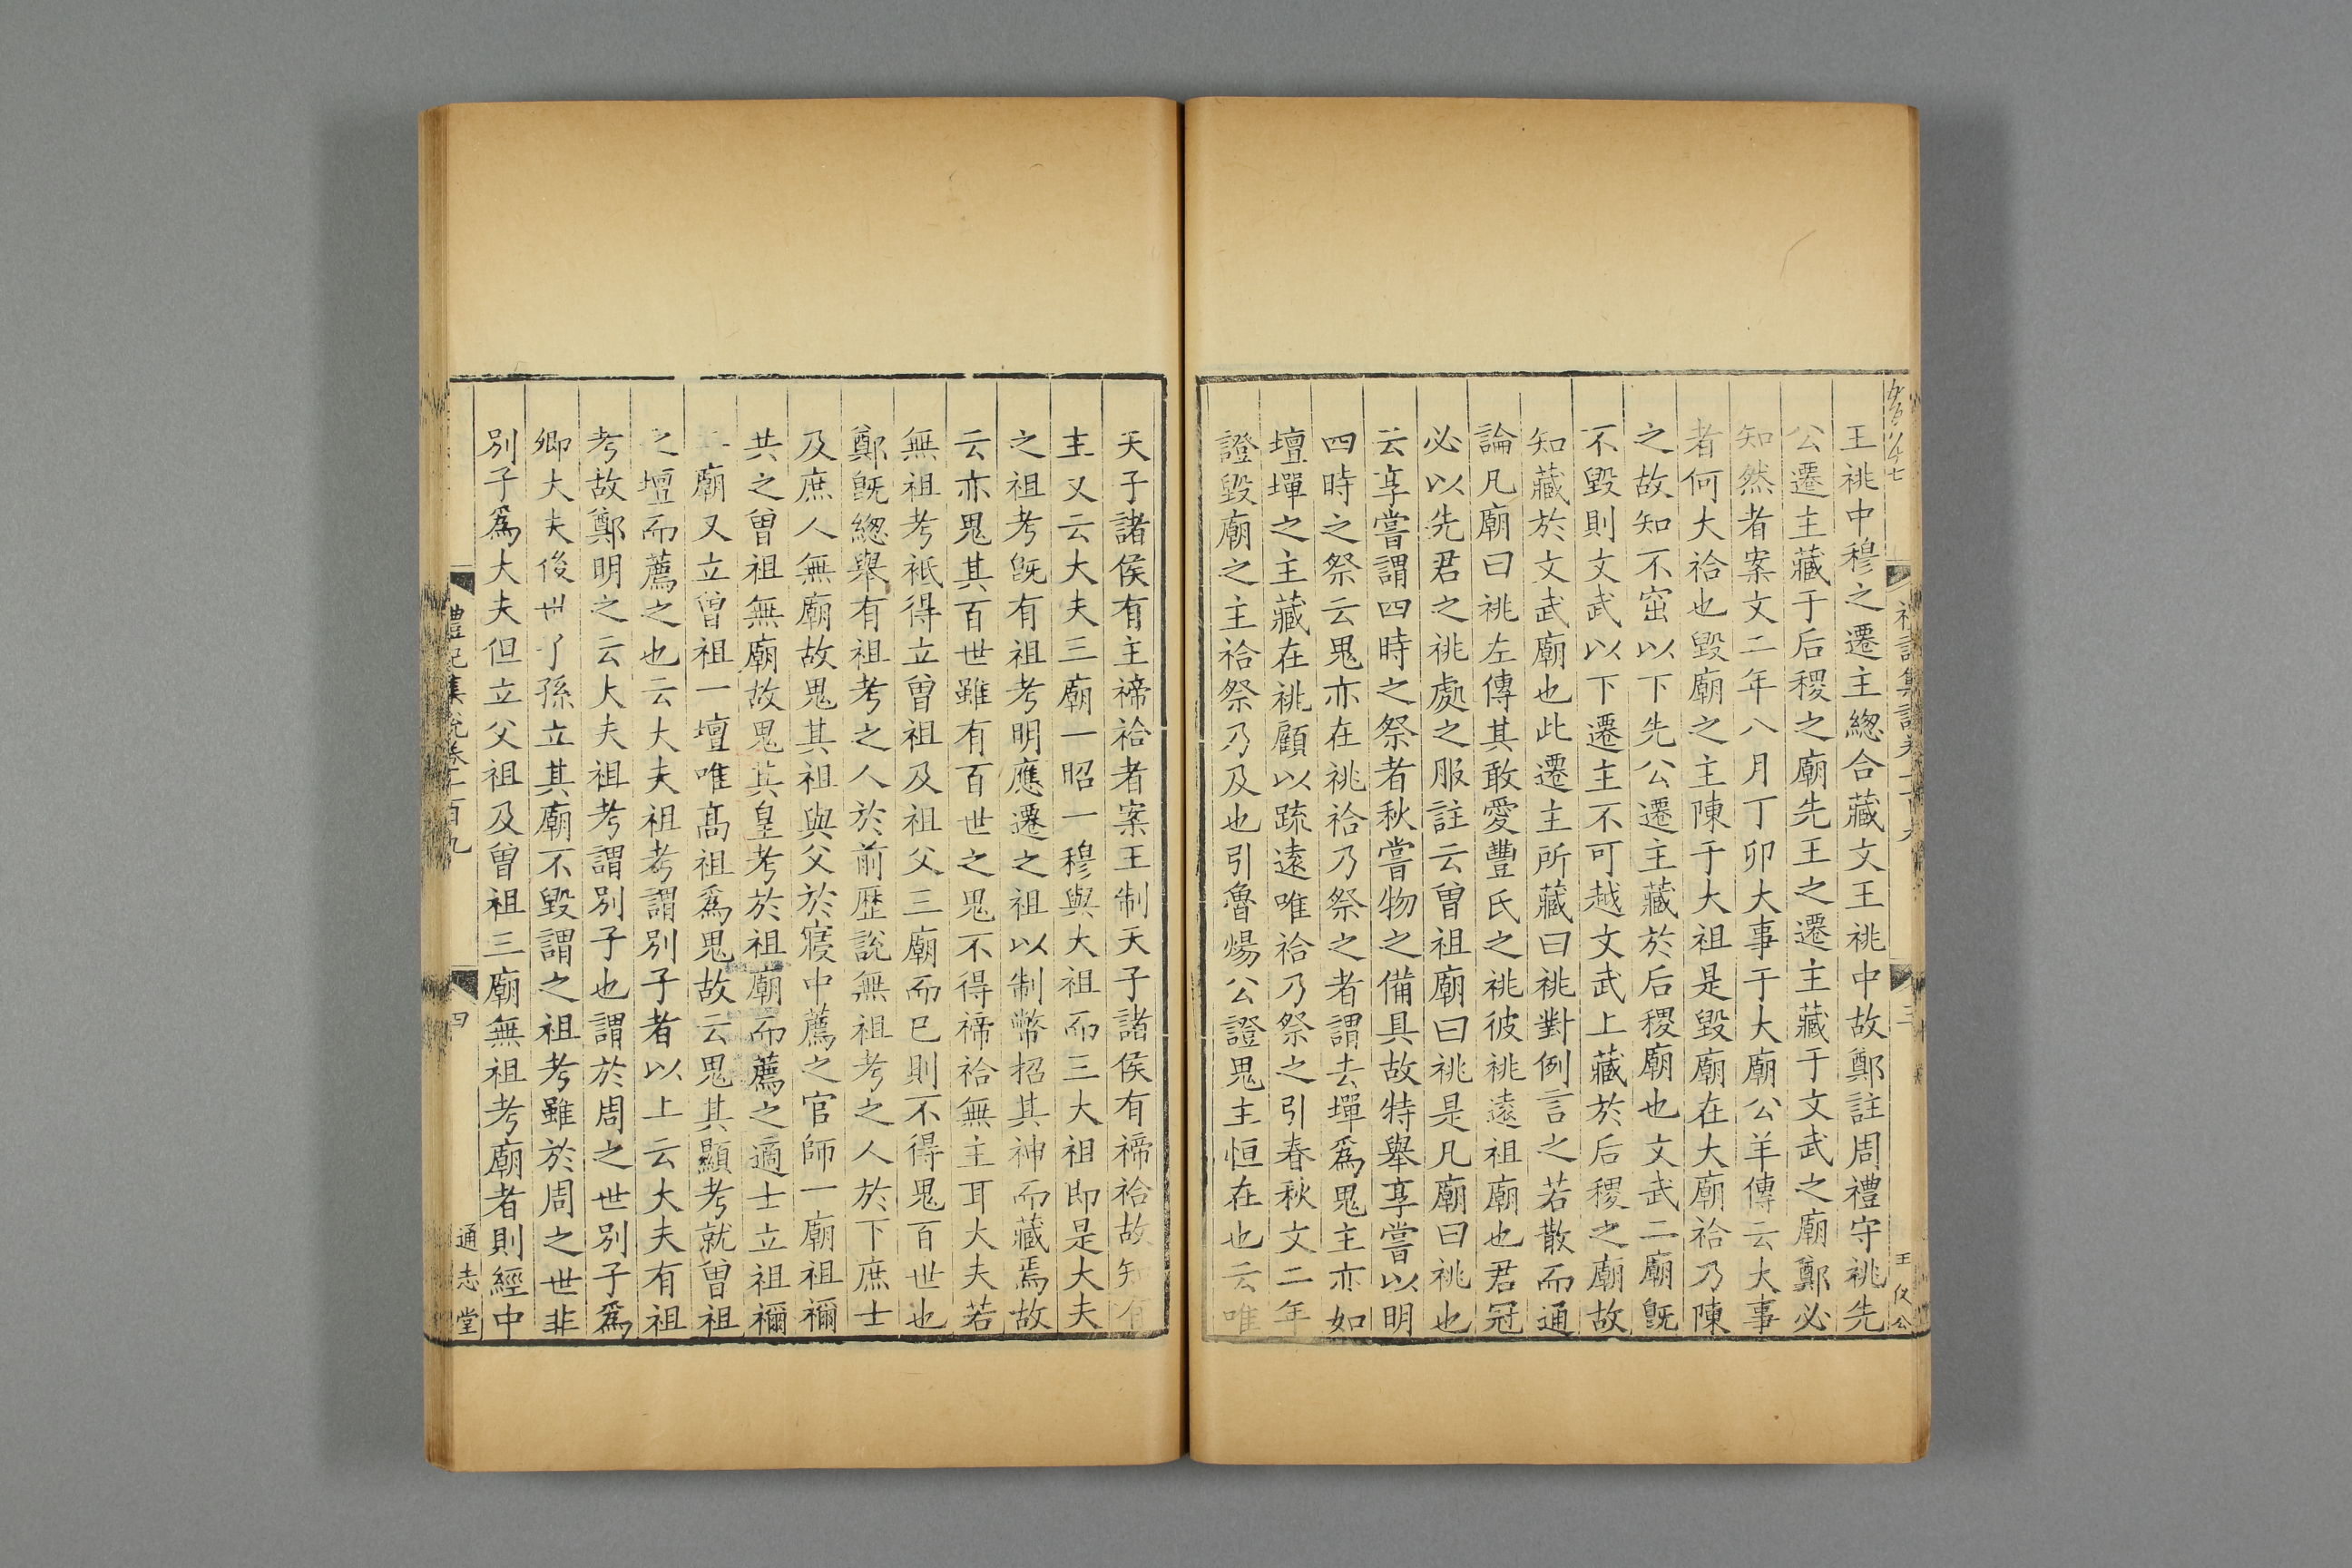 王祧中穆之遷主緫合藏文王祧中故鄭註周禮守祧先
公遷主藏于后稷之廟先王之遷主藏于文武之廟鄭必
知然者案文二年八月丁卯大事于大廟公羊傳云大事
者何大祫也毀廟之主陳于大祖是毀廟在大廟祫乃陳
之故知不窋以下先公遷主藏於后稷廟也文武二廟旣
不毀則文武以下遷主不可越文武上藏於后稷之廟故
知藏於文武廟也此遷主所藏曰祧對例言之若散而通
論凡廟曰祧左傳其敢愛豐氏之祧彼祧遠祖廟也君冠
必以先君之祧處之服註云曾祖廟曰祧是凡廟曰祧也
云享嘗謂四時之祭者秋嘗物之備具故特舉享嘗以明
四時之祭云鬼亦在祧祫乃祭之者謂去墠爲鬼主亦如
壇墠之主藏在祧顧以疏遠唯祫乃祭之引春秋文二年
證毀廟之主祫祭乃及也引魯煬公證鬼主恒在也云唯
天子諸侯有主禘祫者案王制天子諸侯有禘祫故知有
主又云大夫三廟一昭一穆與大祖而三大祖即是大夫
之祖考旣有祖考明應遷之祖以制幣招其神而藏焉故
云亦鬼其百世雖有百世之鬼不得禘祫無主耳大夫若
無祖考祇得立曾祖及祖父三廟而已則不得鬼百世也
鄭旣緫舉有祖考之人於前歷說無祖考之人於下庶士
及庶人無廟故鬼其祖與父於寢中薦之官師一廟祖禰
共之曾祖無廟故鬼其皇考於祖廟而薦之適士立祖禰
廟又立曾祖一壇唯髙祖爲鬼故云鬼其顯考就曾祖
之壇而薦之也云大夫祖考謂別子者以上云大夫有祖
考故鄭明之云大夫祖考謂別子也謂於周之世別子爲
卿大夫後世子孫立其廟不毀謂之祖考雖於周之世非
別子爲大夫但立父祖及曾祖三廟無祖考廟者則經中
禮記集說卷一百九
四
通志堂